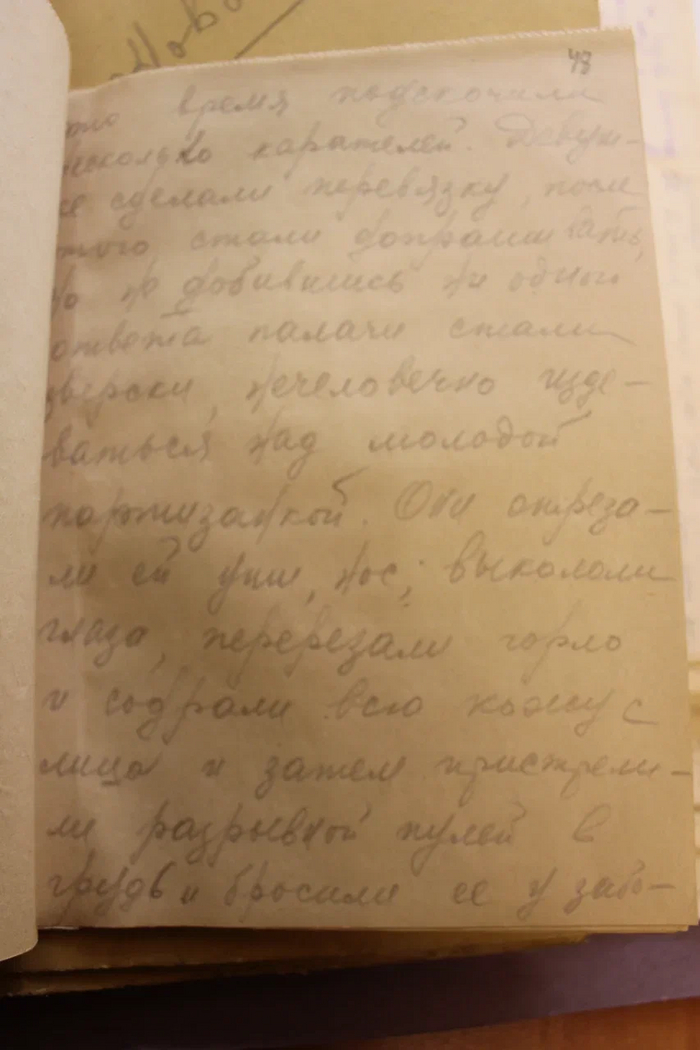 Ново
48
это время подскочили
несколько карателей. Девуш-
ке сделали перевязку, после
этого стали допрашивать,
но не добившись ни одного
ответа палачи стали
зверски, нечеловечно изде-
ваться над молодой
партизанкой. Они отреза-
ли ей уши, нос; выкололи
глаза, перерезали горло
и содрали всю кожу с
лица и затем пристрели-
ли разрывной пулей в
грудь и бросили ее у забо-